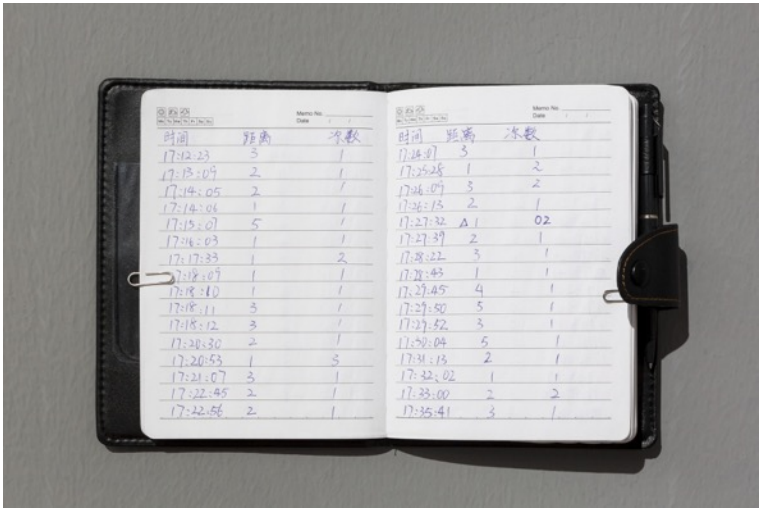 Memo No.
Date
时间 距离 次数
17:12:23 3 1
17:13:09 2 1
17:14:05 2 1
17:14:06 1 1
17:15:07 5 1
17:16:03 1 1
17:17:33 1 2
17:18:09 1 1
17:18:10 1 1
17:18:11 3 1
17:18:12 3 1
17:20:30 2 1
17:20:53 1 3
17:21:07 3 1
17:22:45 2 1
17:22:56 2 1
Memo No.
Date
时间 距离 次数
17:24:07 3 1
17:25:28 1 2
17:26:09 3 2
17:26:13 2 1
17:27:32 Δ 1 02
17:27:39 2 1
17:28:22 3 1
17:28:43 1 1
17:29:45 4 1
17:29:50 5 1
17:29:52 3 1
17:30:04 5 1
17:31:13 2 1
17:32:02 1 1
17:33:00 2 2
17:35:41 3 1